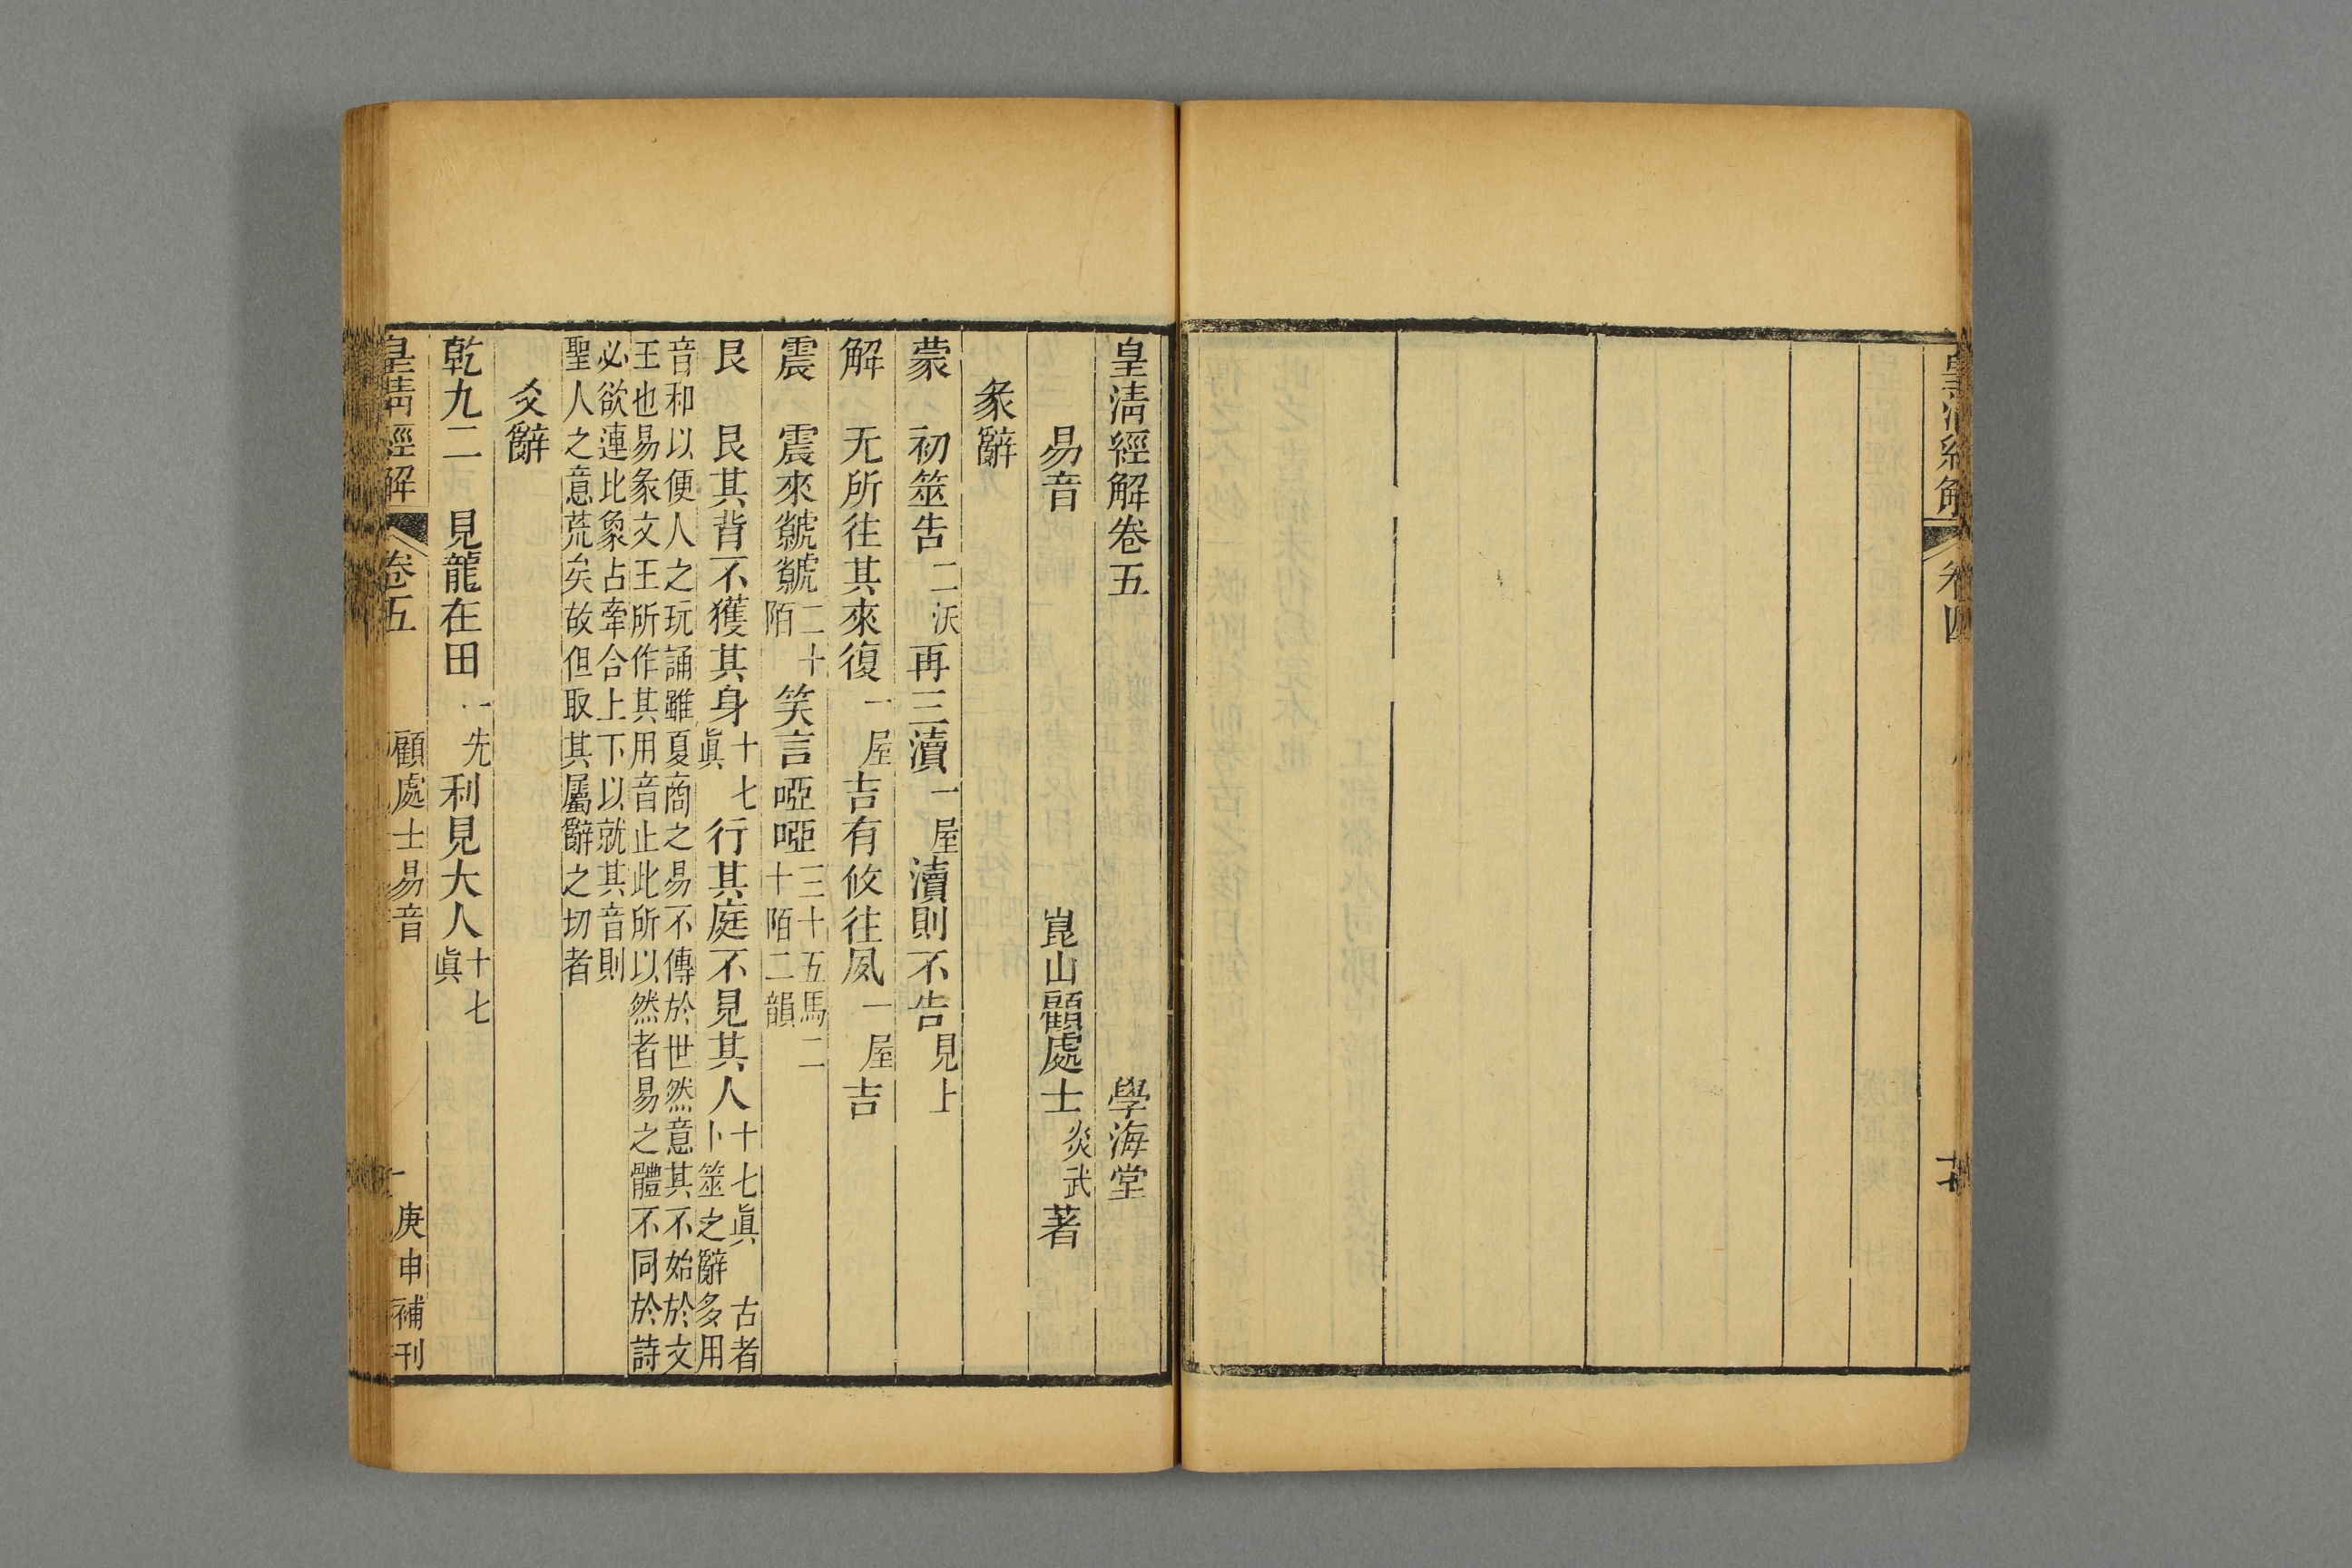 皇清經解卷五　學海堂
易音　崑山顧處士炎武著
彖辭
蒙　初筮告二沃再三瀆一屋瀆則不告見上
解　无所往其來復一屋吉有攸往夙一屋吉
震　震來虩虩二十陌笑言啞啞三十五馬二十陌二韻
艮　艮其背不獲其身十七眞行其庭不見其人十七眞　古者卜筮之辭多用
音和以便人之玩誦雖夏商之易不傳於世然意其不始於文
王也易彖文王所作其用音止此所以然者易之體不同於詩
必欲連比象占牽合上下以就其音則
聖人之意荒矣故但取其屬辭之切者
爻辭
乾九二　見龍在田一先利見大人十七眞
皇清經解　卷五　顧處士易音　一　庚申補刊
皇清經解　卷四